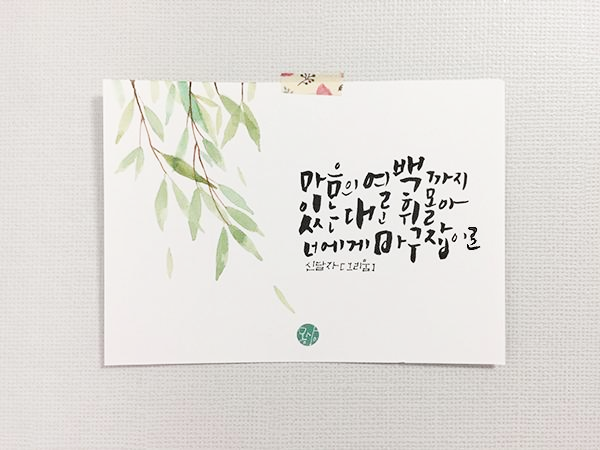 마음의 여백까지
있는 대로 휘몰아
너에게 마구잡이로
신달자 [그리움]